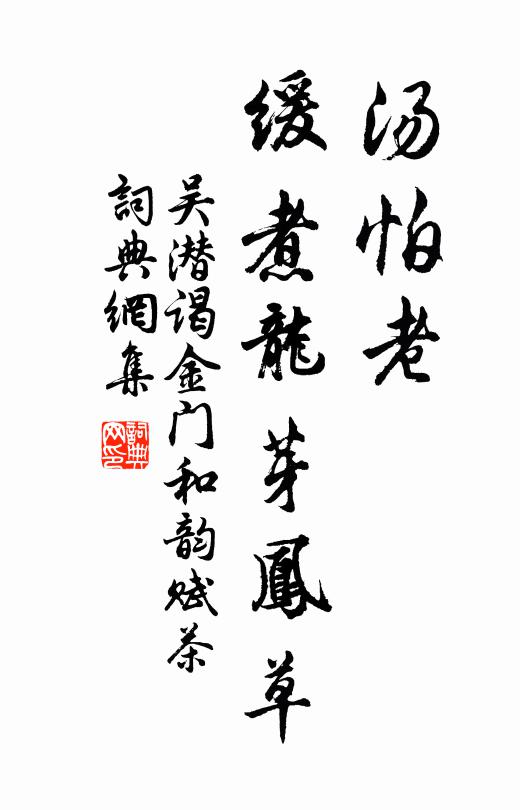 汤怕老
缓煮龍芽鳳草
吴潜谒金门和韵赋茶
詞典網集
詞典
网印